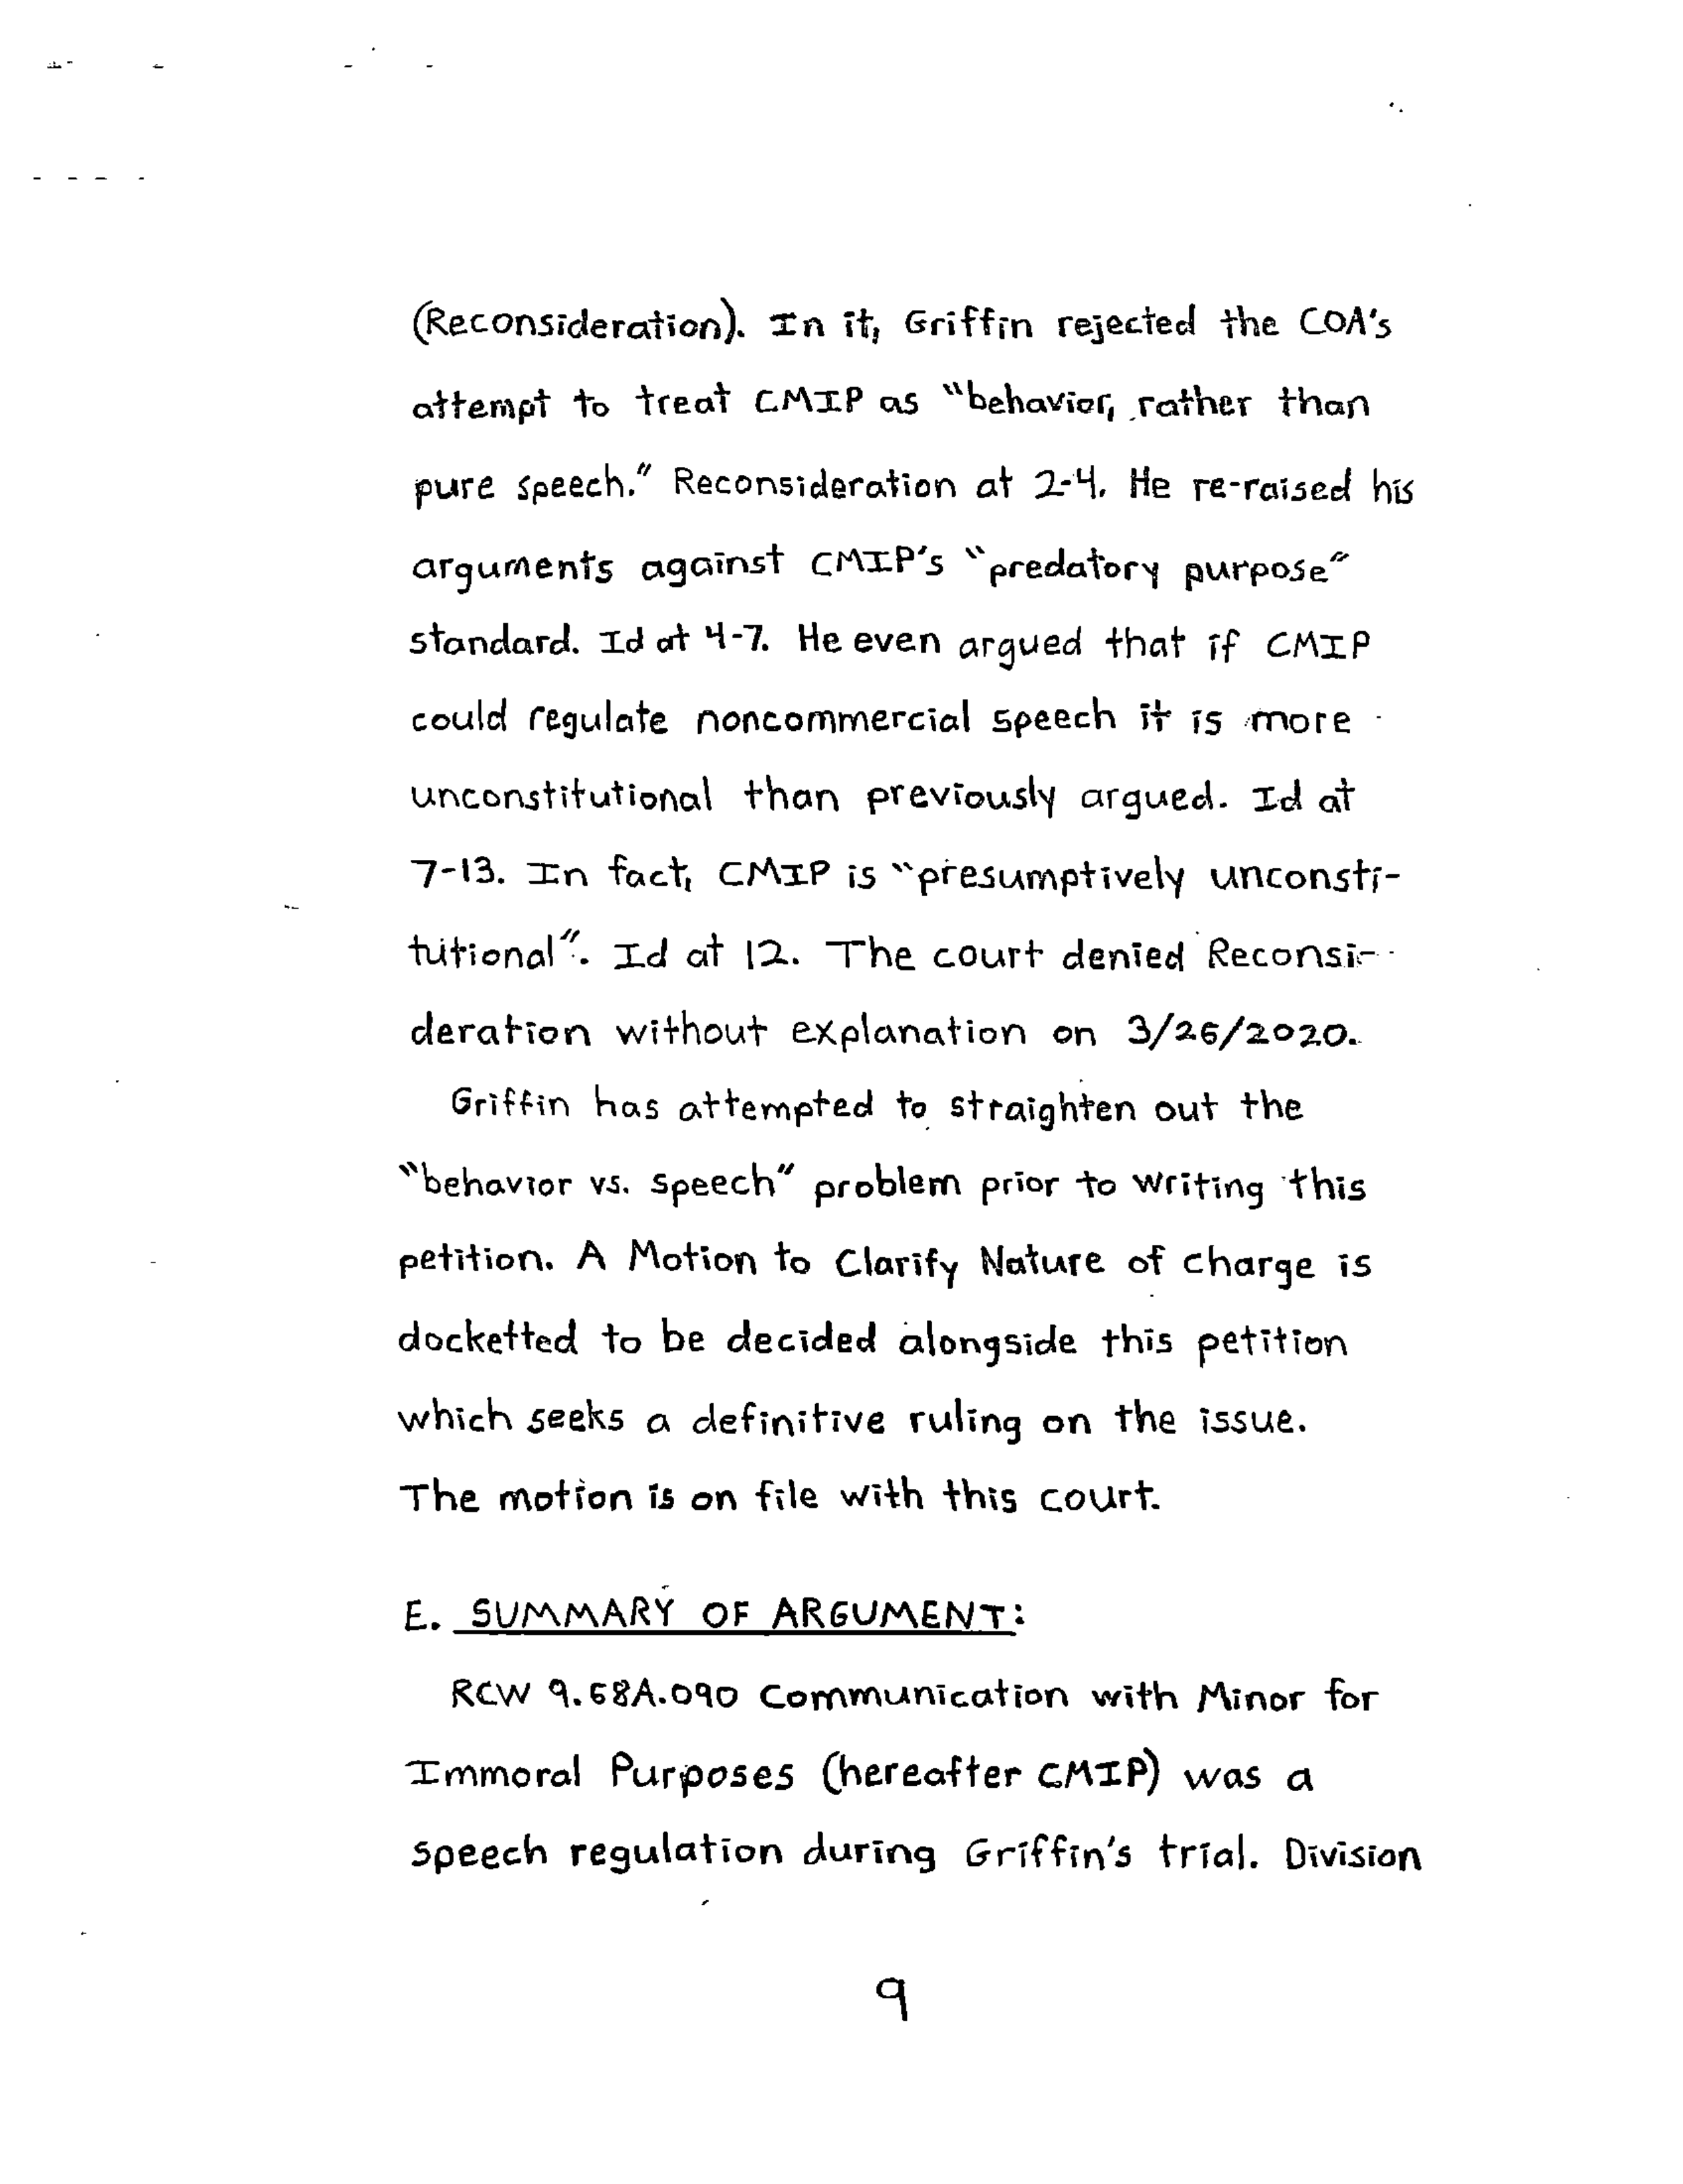 (Reconsideration). In it, Griffin rejected the COA's
attempt to treat CMIP as "behavior, rather than
pure speech." Reconsideration at 2-4. He re-raised his
arguments against CMIP's "predatory purpose"
standard. Id at 4-7. He even argued that if CMIP
could regulate noncommercial speech it is more
unconstitutional than previously argued. Id at
7-13. In fact, CMIP is "presumptively unconsti-
tutional". Id at 12. The court denied Reconsi-
deration without explanation on 3/26/2020.
Griffin has attempted to straighten out the
"behavior vs. speech" problem prior to writing this
petition. A Motion to Clarify Nature of charge is
docketted to be decided alongside this petition
which seeks a definitive ruling on the issue.
The motion is on file with this court.
E. SUMMARY OF ARGUMENT:
RCW 9.68A.090 Communication with Minor for
Immoral Purposes (hereafter CMIP) was a
speech regulation during Griffin's trial. Division
9